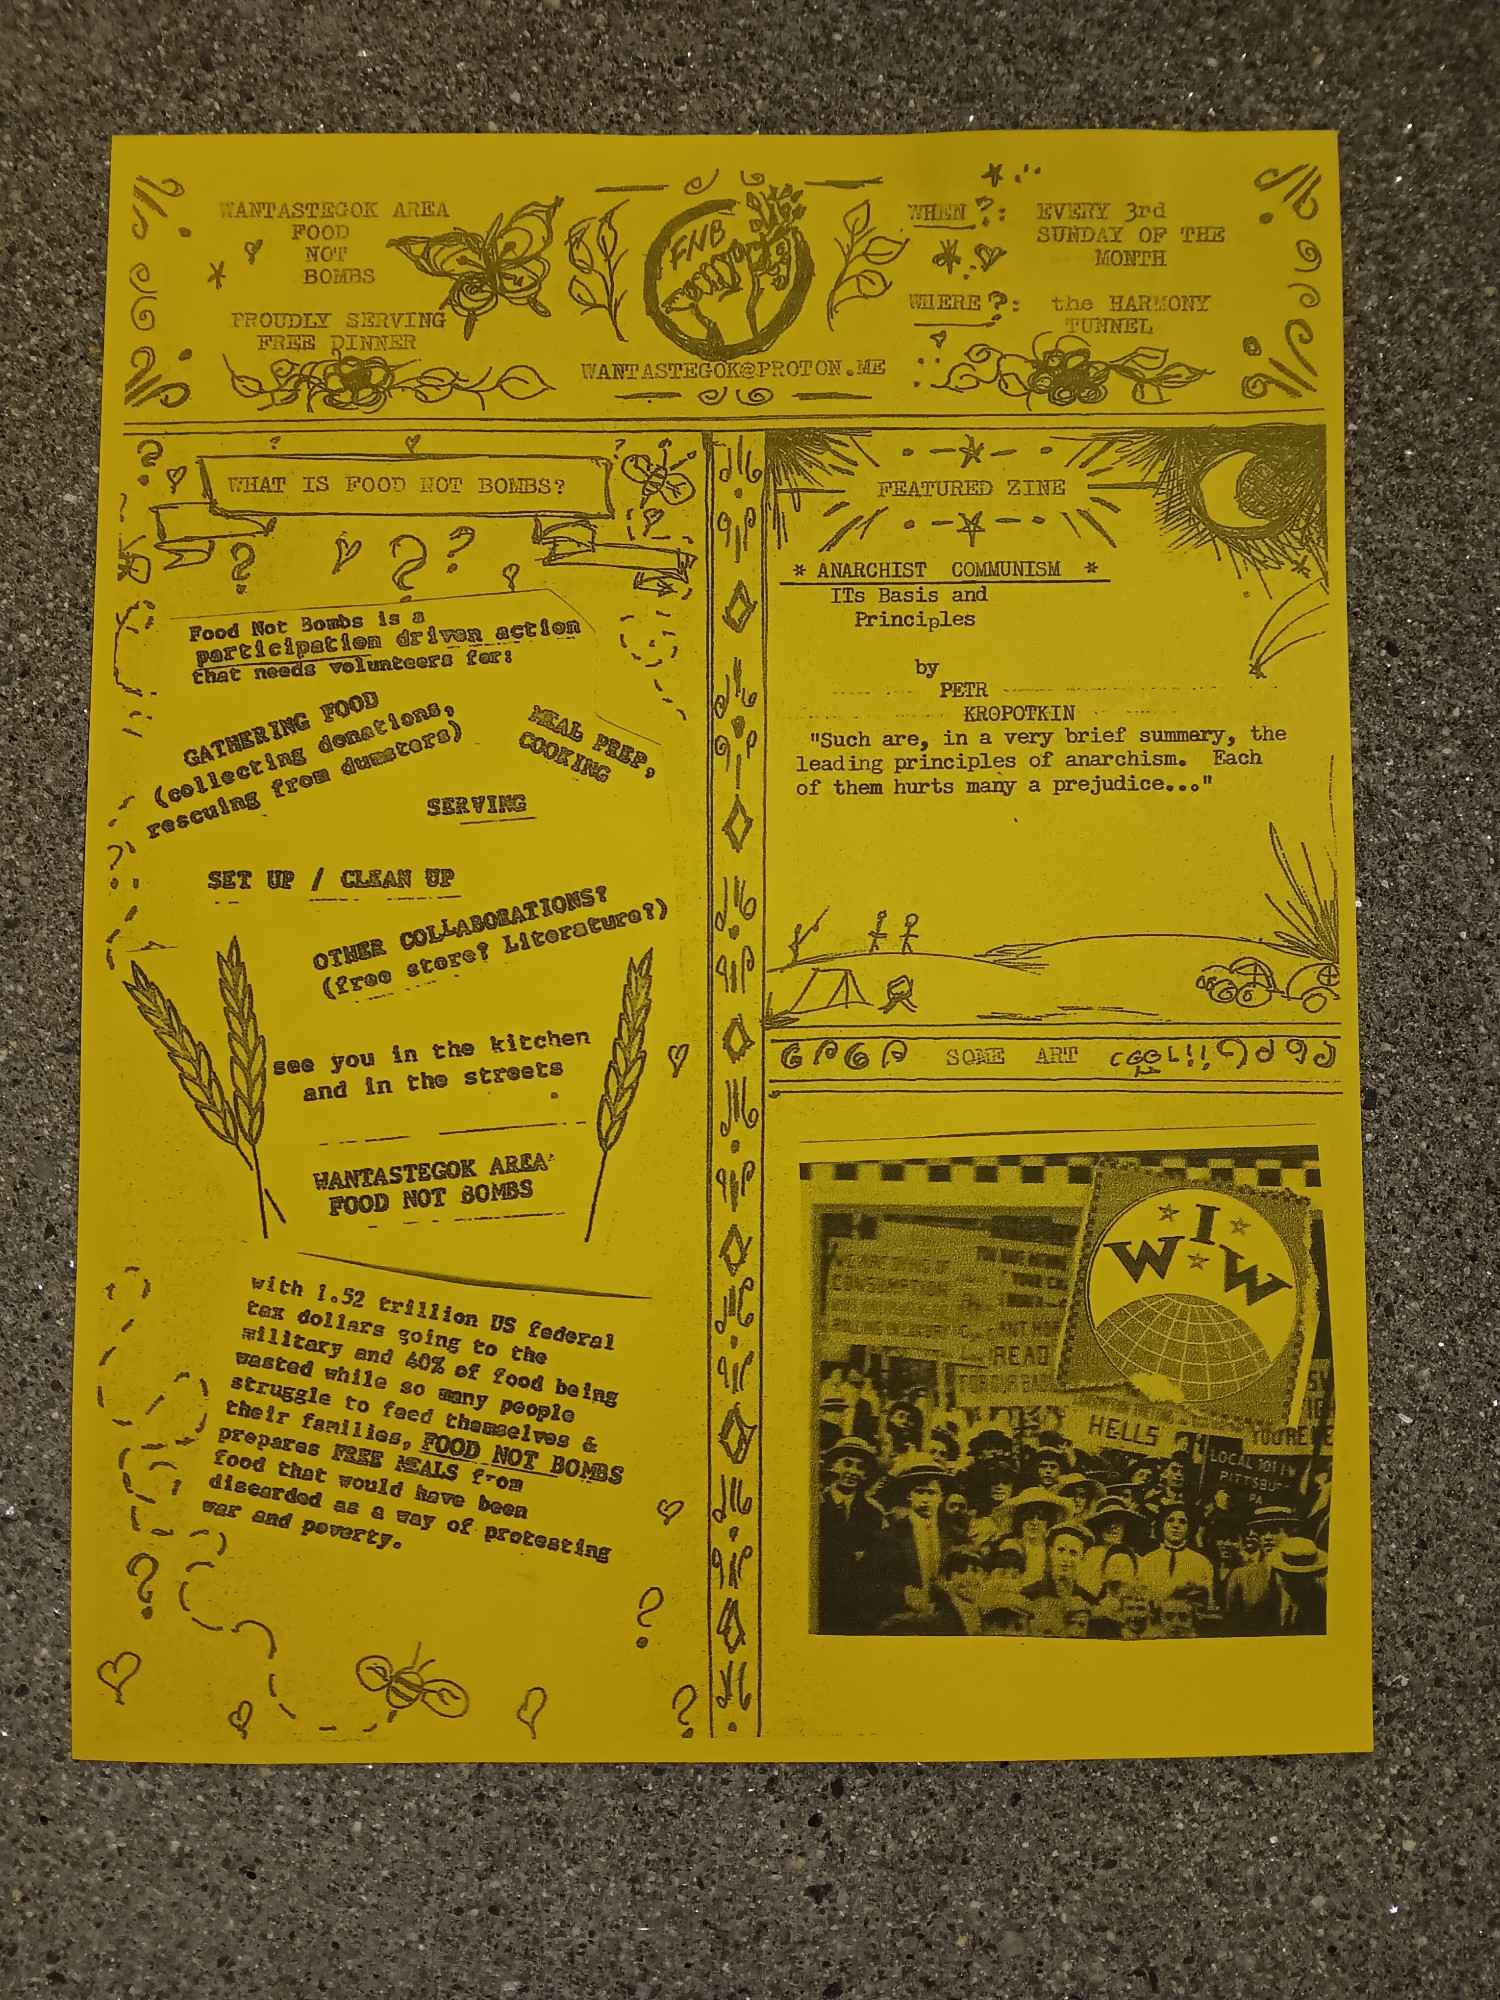 WANTASTEGOK AREA
FOOD
NOT
BOMBS
PROUDLY SERVING
FREE DINNER
FNB
WANTASTEGOK@PROTON.ME
WHEN?: EVERY 3rd
SUNDAY OF THE
MONTH
WHERE?: the HARMONY
TUNNEL
WHAT IS FOOD NOT BOMBS?
Food Not Bombs is a
participation driven action
that needs volunteers for:
GATHERING FOOD
(collecting donations,
rescuing from dumsters)
MEAL PREP,
COOKING
SERVING
SET UP / CLEAN UP
OTHER COLLABORATIONS?
(free store? Literature?)
see you in the kitchen
and in the streets
WANTASTEGOK AREA
FOOD NOT BOMBS
with 1.52 trillion US federal
tax dollars going to the
military and 40% of food being
wasted while so many people
struggle to feed themselves &
their families, FOOD NOT BOMBS
prepares FREE MEALS from
food that would have been
discarded as a way of protesting
war and poverty.
FEATURED ZINE
* ANARCHIST COMMUNISM *
ITs Basis and
Principles
by
PETR
KROPOTKIN
"Such are, in a very brief summary, the
leading principles of anarchism. Each
of them hurts many a prejudice..."
SOME ART
IWW
WE ARE DYING OF
CONSUMPTION
ROLLING IN LUXURY
READ
FOR OUR
HELLS
YOU'RE
LOCAL
PITTSBU
PA